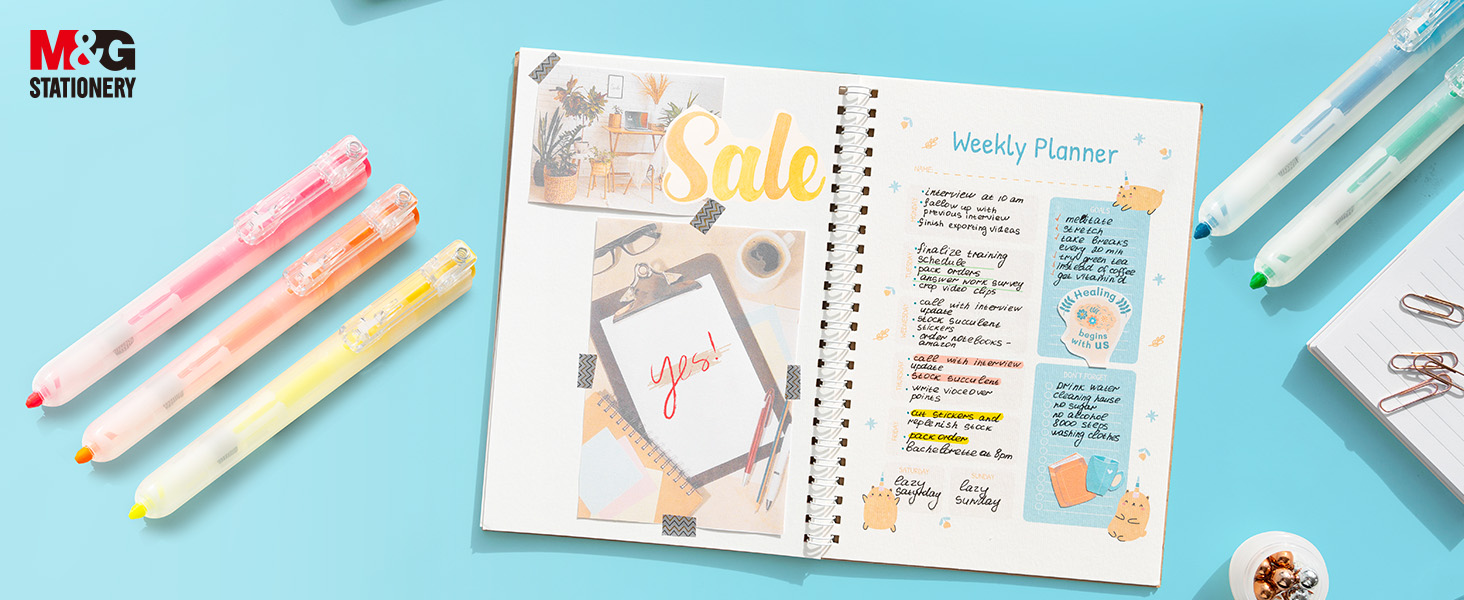 M&G
STATIONERY
Sale
yes!
Weekly Planner
NAME
interview at 10 am
follow up with
previous interview
finish exporting videos
finalize training
schedule
pack orders
answer work survey
crop video clips
call with interview
update
stock succulent
stickers
order notebooks -
amazon
call with interview
update
stock succulent
write voiceover
points
cut stickers and
replenish stock
pack order
bachelorette at 8pm
SATURDAY
lazy
SUNDAY
lazy
sunday
GOALS
stretch
take breaks
every 20 min
try green tea
instead of coffee
get vitamin d
Healing
begins
with US
DON'T FORGET
DRINK WATER
cleaning house
no sugar
no alcohol
8000 steps
washing clothes